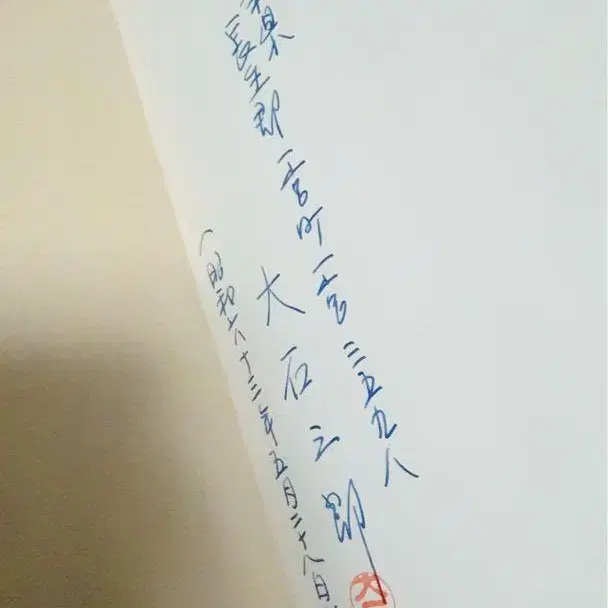 県長生郡一宮町一宮三五九八
大石三郎
(昭和六十三年五月二十八日